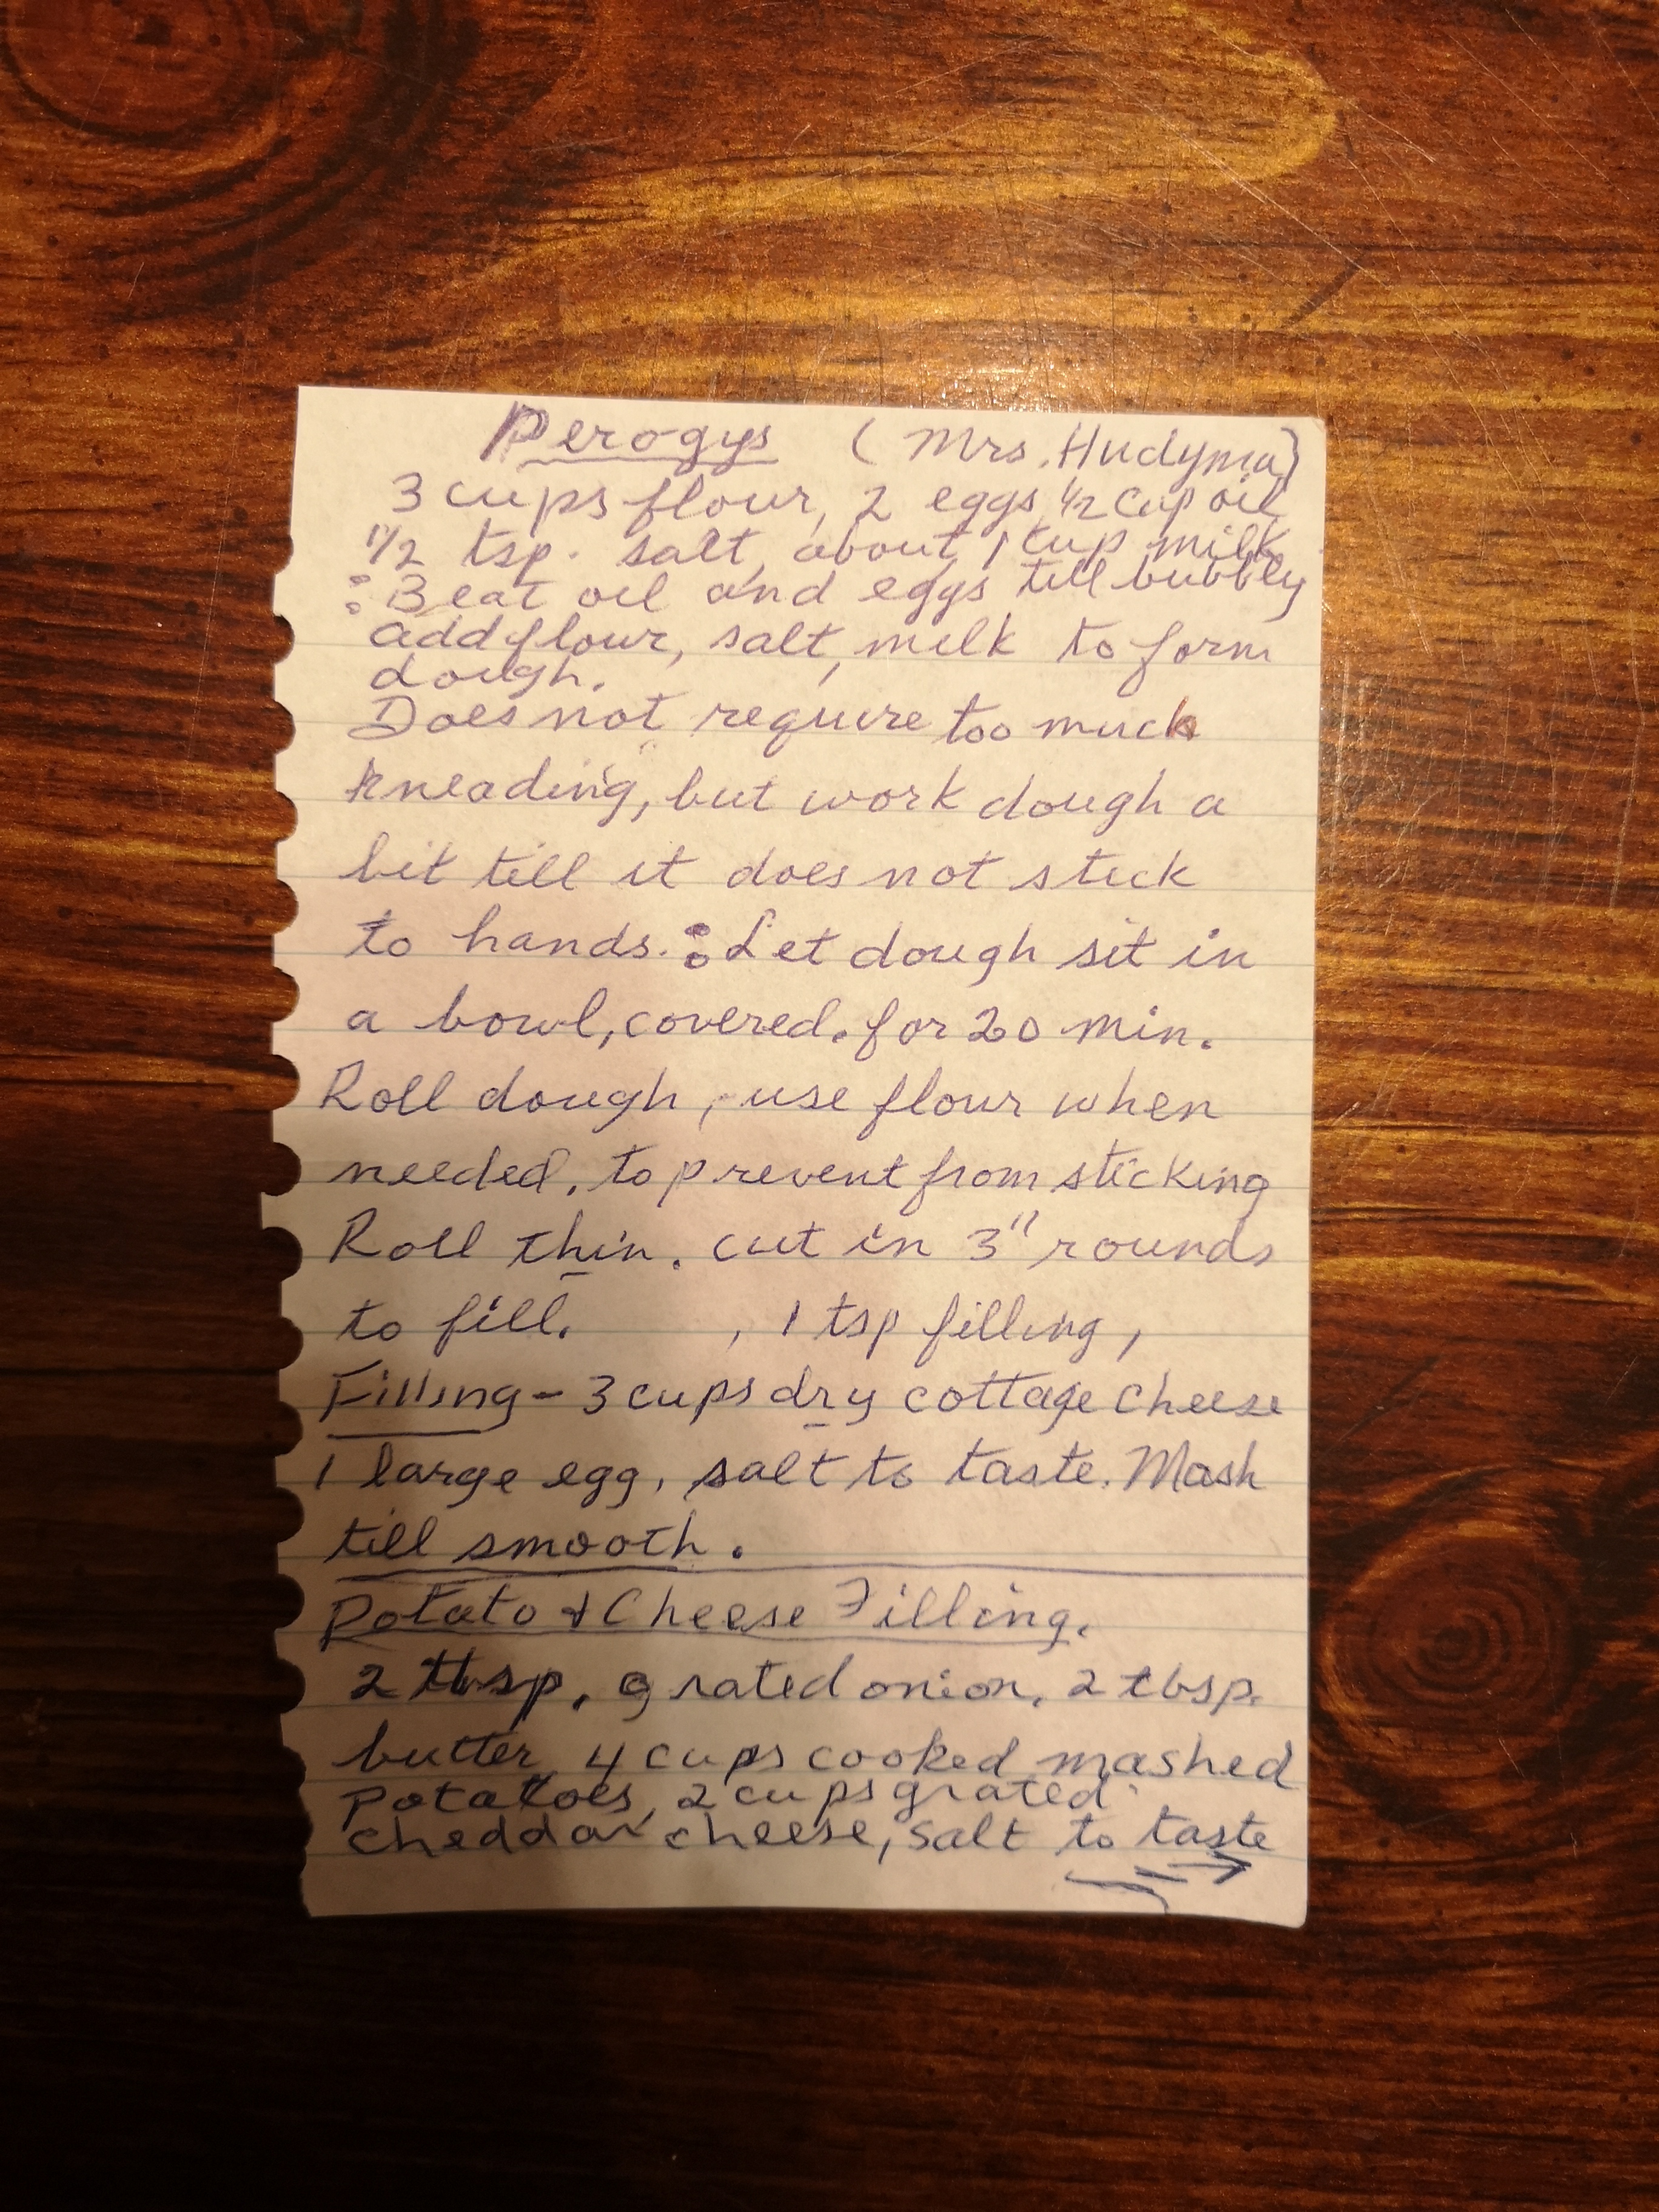 Perogys (Mrs. Hudyma)
3 cups flour, 2 eggs, 1/2 cup oil,
1 1/2 tsp. salt, about 1 cup milk
: Beat oil and eggs till bubbly
add flour, salt, milk to form
dough.
Does not require too much
kneading, but work dough a
bit till it does not stick
to hands. : Let dough sit in
a bowl, covered. for 20 min.
Roll dough, use flour when
needed, to prevent from sticking
Roll thin. cut in 3" rounds
to fill. , 1 tsp filling,
Filling - 3 cups dry cottage cheese
1 large egg, salt to taste. Mash
till smooth.
Potato & Cheese Filling.
2 tbsp. grated onion, 2 tbsp.
butter, 4 cups cooked mashed
potatoes, 2 cups grated
cheddar cheese, salt to taste